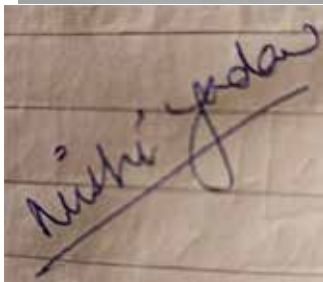 Nishi yadav